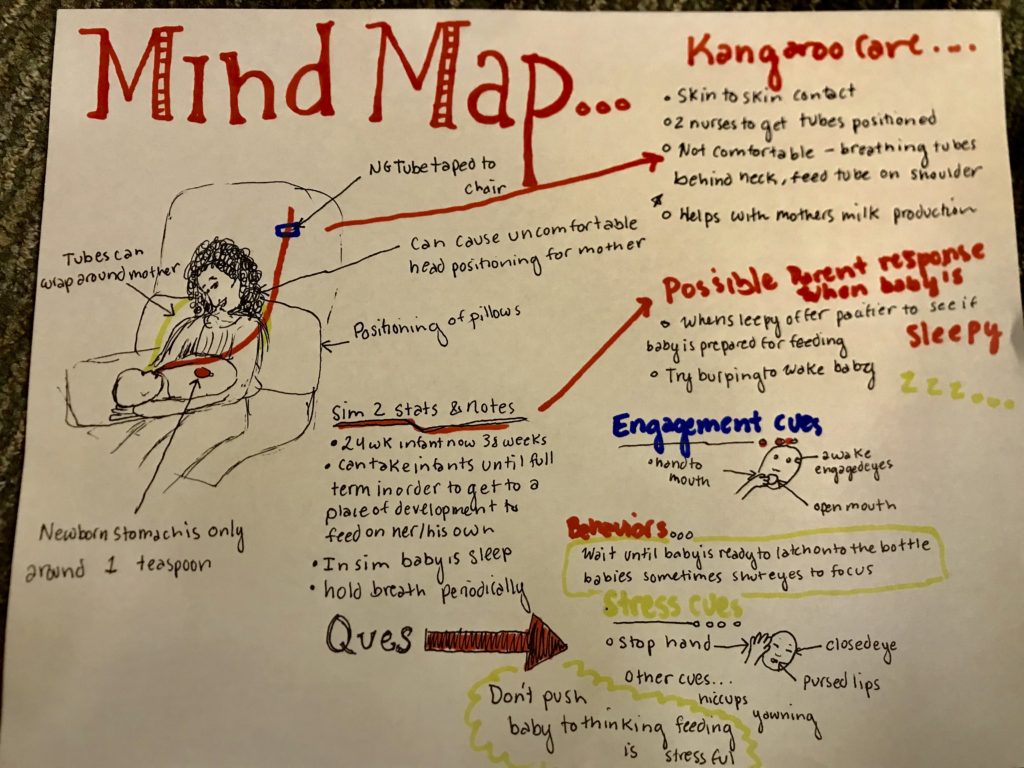 Mind Map...
Kangaroo care....
• Skin to skin contact
• 2 nurses to get tubes positioned
• Not comfortable - breathing tubes
behind neck, feed tube on shoulder
* • Helps with mothers milk production
NG Tube taped to
chair
Can cause uncomfortable
head positioning for mother
Tubes can
wrap around mother
Positioning of pillows
Newborn stomach is only
around 1 teaspoon
Possible Parent response
when baby is
sleepy
• When sleepy offer pacifier to see if
baby is prepared for feeding
• Try burping to wake baby
zzz...
Sim 2 stats & Notes
• 24 wk infant now 38 weeks
• can take infants until full
term in order to get to a
place of development to
feed on her/his own
• In sim baby is sleep
• hold breath periodically
Ques
Engagement cues
• hand to
mouth
awake
engaged eyes
open mouth
Behaviors...
Wait until baby is ready to latch onto the bottle
babies sometimes shut eyes to focus
Stress cues
• Stop hand
closed eye
pursed lips
Other cues...
hiccups
yawning
Don't push
baby to thinking feeding
is stressful